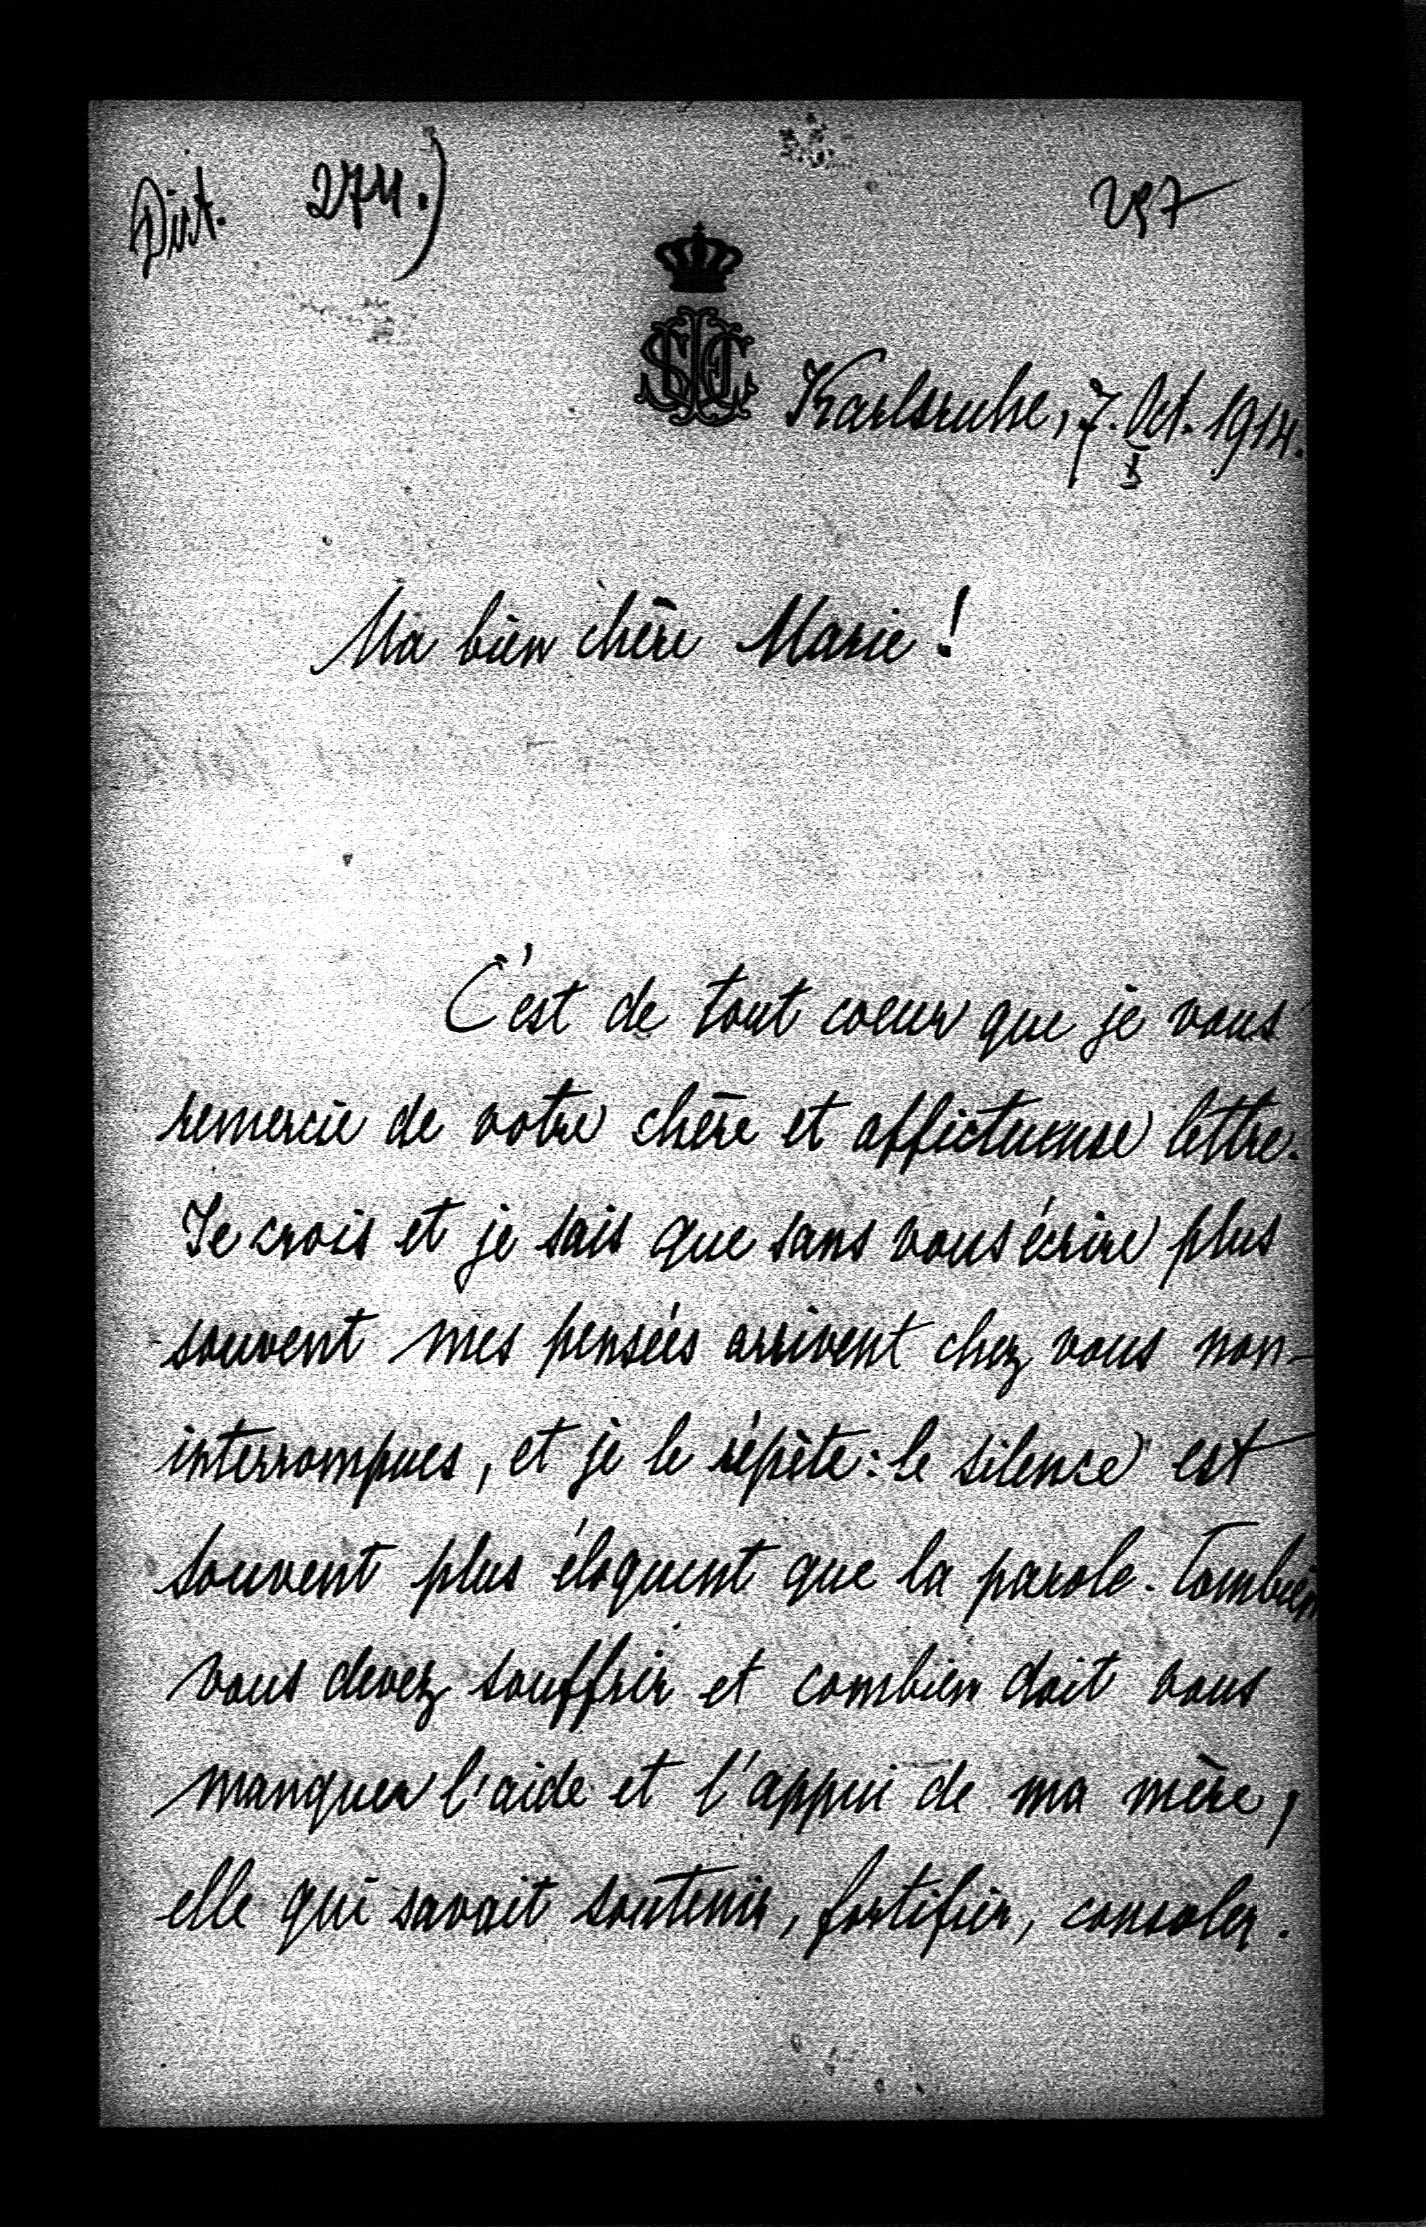 Dict. 274.)
257
Karlsruhe, 7. Oct. 1914.
Ma bien chère Marie!
C'est de tout coeur que je vous
remercie de votre chère et affectueuse lettre.
Je crois et je sais que sans vous écrire plus
souvent mes pensées arrivent chez vous non-
interrompues, et je le répète: le silence est
souvent plus éloquent que la parole. Combien
vous devez souffrir et combien doit vous
manquer l'aide et l'appui de ma mère,
elle qui savait soutenir, fortifier, consoler.